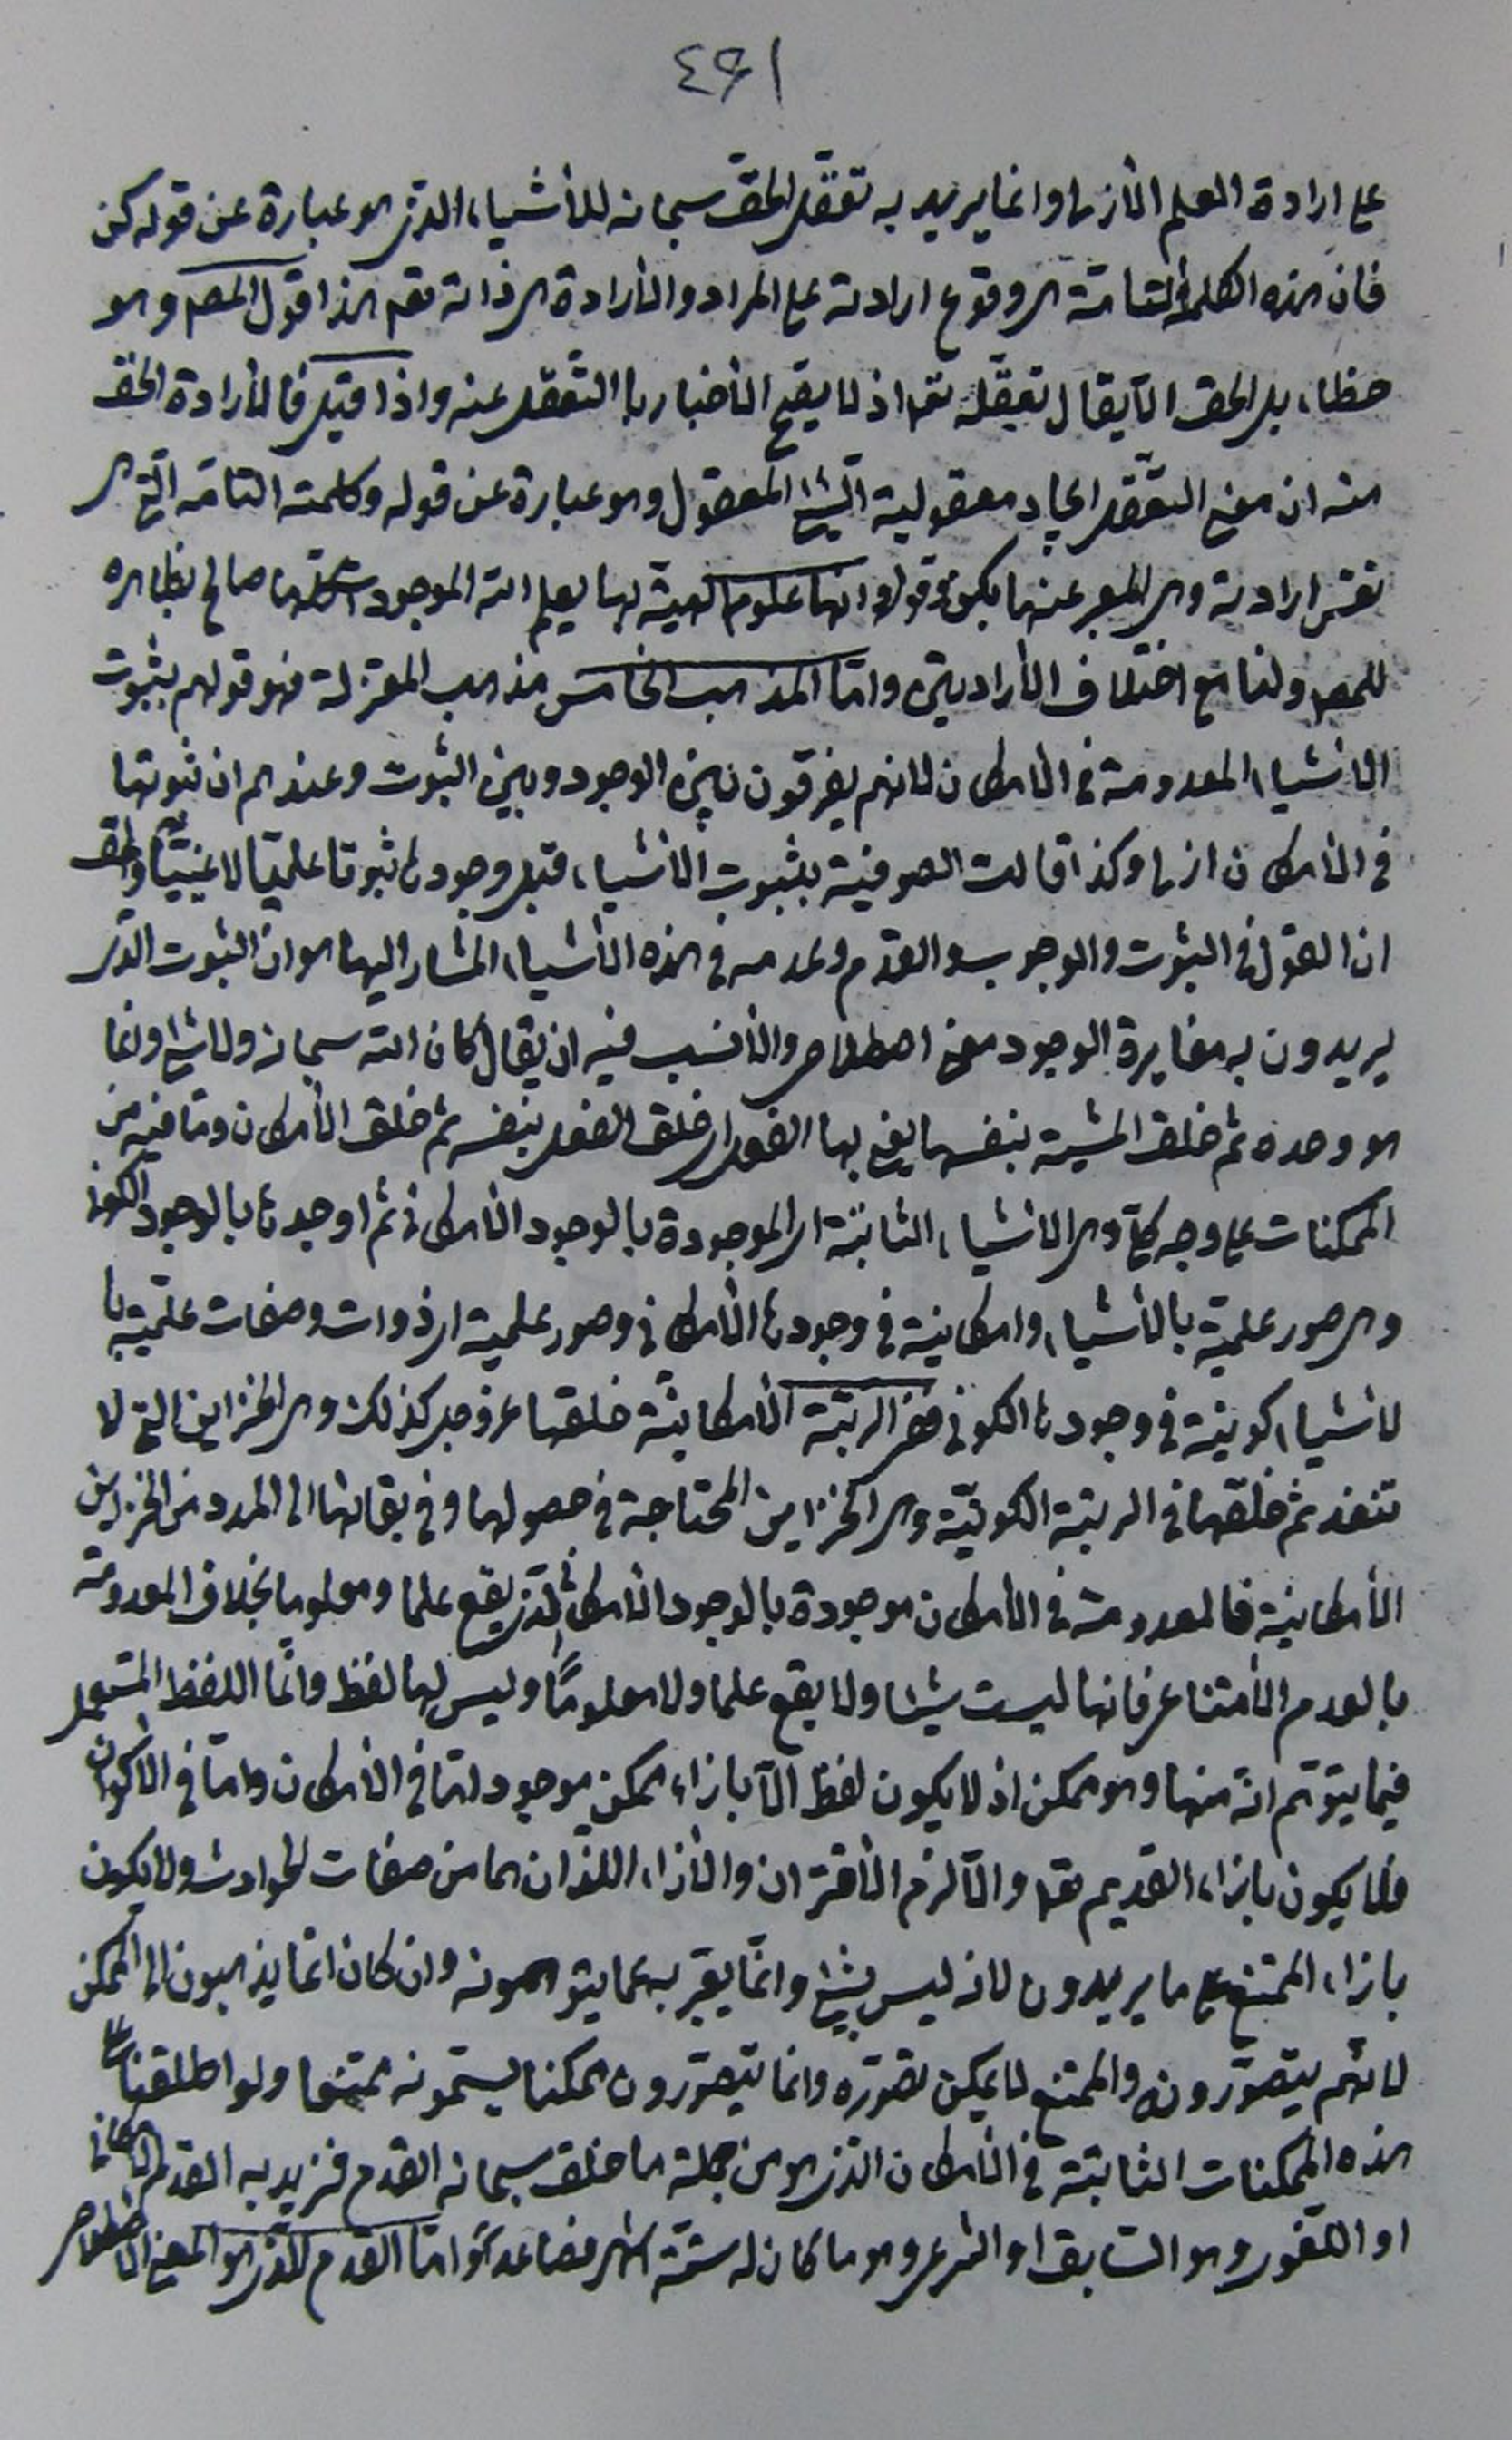 ٤٩١
على ارادة العلم الأزلى وانما يريد به تعقل الحق سبحانه للأشياء الذى هو عبارة عن قوله كن
فان هذه الكلمة التامّة هى وقوع ارادته على المراد والأرادة هى ذاته تعم هذا قول المصـ وهو
خطاء بل الحق الّا يقال تعقّله تعم اذ لا يصح الأخبار با التعقل عنه واذا قيل فالأرادة الحق
منه ان معنى التعقّل ايجاد معقولية الشئ المعقول وهو عبارة عن قوله وكلمته التامّه التى هى
نفس ارادته وهى المعبر عنها بكن وقوله وانها علوم الهية بها يعلم الله الموجودات كلها صالح بظاهره
للمصـ ولنا مع اختلاف الأرادتين وامّا المذهب الخامس مذهب المعتزلة فهو قولهم بثبوت
الأشياء المعدومة فى الأمكان لانهم يفرقون بين الوجود وبين الثبوت وعندهم ان ثبوتها
فى الأمكان ازلى وكذا قالت الصوفية بثبوت الأشياء قبل وجودها ثبوتا علميّا لا عينيّا والحق
ان القول فى الثبوت والوجوب والقدم وعدمه فى هذه الأشياء المشار اليها هو ان الثبوت الذى
يريدون به مغايرة الوجود معنى اصطلاحى والأنسب فيه ان يقال كان الله سبحانه ولا شئ وانما
هو وحده ثم خلق المشية بنفسها يعنى بها الفعل اى خلق الفعل بنفسه ثم خلق الأمكان وما فيه من
الممكنات على وجه كلّى وهى الأشياء الثابتة اى الموجودة بالوجود الأمكانى ثم اوجدها بالوجود الكونى
وهى صور علمية بالأشياء وامكانية فى وجودها الأمكانى وصور علمية اى ذوات وصفات علمية با
لأشياء كونية فى وجودها الكونى ففى الرتبة الأمكانيّة خلقها عز وجل كذلك وهى الخزاين التى لا
تنفد ثم خلقها فى الرتبة الكونيّة وهى الخزاين المحتاجة فى حصولها وفى بقائها الى المدد من الخزاين
الأمكانية فالمعدومة فى الأمكان موجودة بالوجود الأمكانى الذى يقع علما ومعلوما بخلاف المعدومة
بالعدم الأمتناعى فانها ليست شيئا ولا يقع علما ولا معلومًا وليس لها لفظ وانّما اللفظ المستعمل
فيما يتوهّم انّه منها وهو ممكن اذ لا يكون لفظ الّا بازاء ممكن موجود امّا فى الأمكان وامّا فى الاكوان
فلا يكون بازاء القديم تعم والّا لزم الأقتران والأزاء اللذان هما من صفات الحوادث ولا يكون
بازاء الممتنع على ما يريدون لانه ليس بشئ وانّما يعبّر به عما يتوهمونه وان كان انما يذهبون الى الممكن
لانّهم يتصوّرونه والممتنع لا يمكن تصوّره وانما يتصوّرون ممكنا يسمّونه ممتنعا ولو اطلقنا على
هذه الممكنات الثابتة فى الأمكان الذى هو من جملة ما خلق سبحانه القدم فنريد به القدم الامكانى
او اللغوى وهو السابق او الشرعى وهو ما كان له ستّة اشهر فصاعدًا وامّا القدم الذى هو المعنى الاصطلاحى